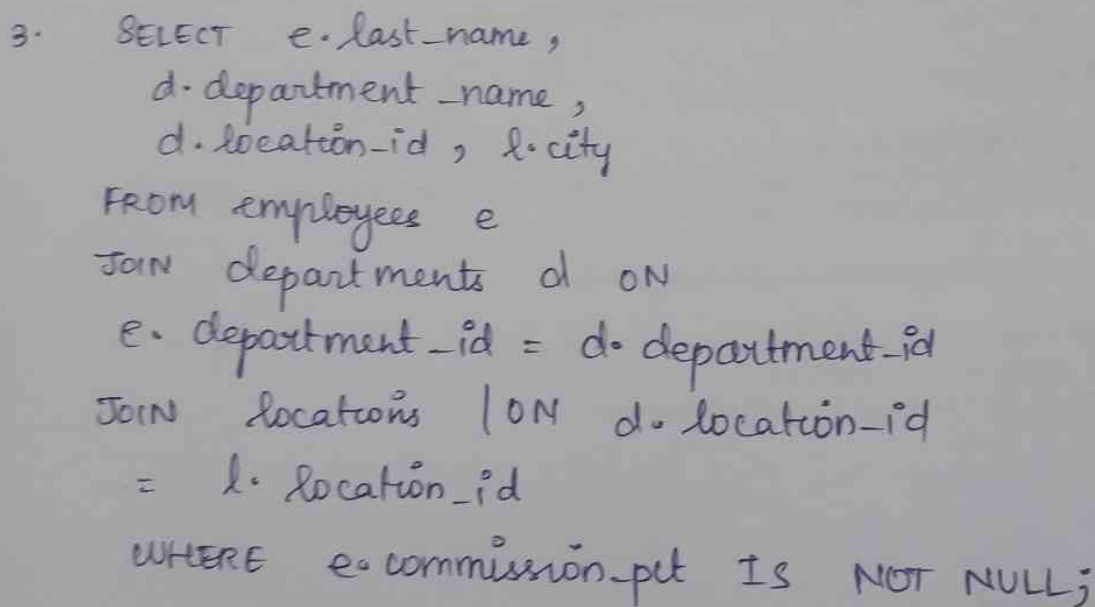 3. SELECT e.last_name,
d.department_name,
d.location_id, l.city
FROM employees e
JOIN departments d ON
e.department_id = d.department_id
JOIN locations l ON d.location_id
= l.location_id
WHERE e.commission_pct IS NOT NULL;